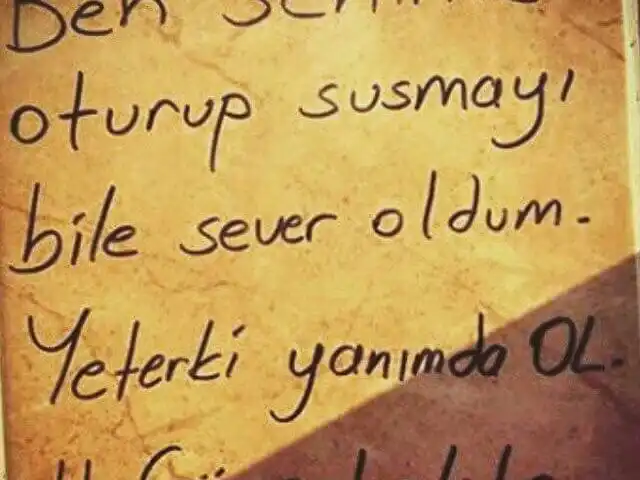 Ben seninle
oturup susmayı
bile sever oldum.
Yeterki yanımda OL.